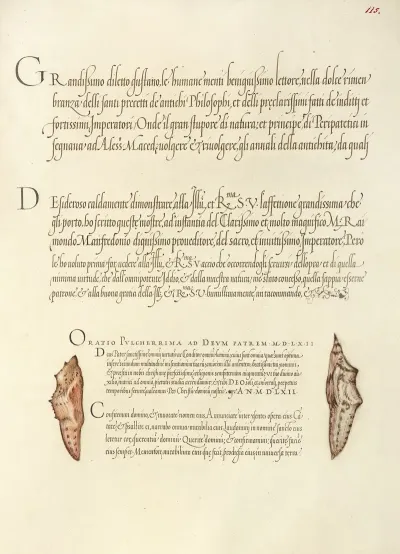 115.
GRandissimo diletto gustano, le humane menti benignissimo lettore, nella dolce rimem
branza, delli santi precetti de antichi Philosophi, et delli preclarissimi fatti de inditti, et
fortissimi Imperatori, Onde il gran stupore di natura, et principe di Peripatetici in
segnava ad Aless: Maced: volgere & rivolgere, gli annali della antichità, da quali
DEsideroso caldamente dimonstrare alla Ill, et Rma S. V. l'affettione grandissima che
gli porto, ho scritto queste mostre, ad instantia del Clarissimo et molto magnifico M. Rai
mondo Manfredonio dignissimo proveditore, del sacro, et invittissimo Imperatore, Pero
le ho voluto prima far vedere alla Ill, & Rma S. V. acio che occorrendogli servirsi dell'opra et di quella
minima virtude, che dall'omnipotente Iddio, & dalla maestra natura, me stato concesso, quella sappia esserne
patrone & alla buona gratia della Ill, & Rma S. V. humillmente mi racomando, &
ORATIO PULCHERRIMA AD DEUM PATREM M D LXII
Deus Pater
DEO
per Christū dominū nostrū. ANMDLXII.
Confitemini domino, & invocate nomen eius, Annunciate inter gentes opera eius Can
tate, & psallite ei, narrate omnia mirabilia eius, Laudamini in nomine sancto eius
letetur cor querentiū dominū Querite dominū, & confirmamini querite faciē
eius semper, Mementote mirabilium eius que fecit prodigia eius in universa terra